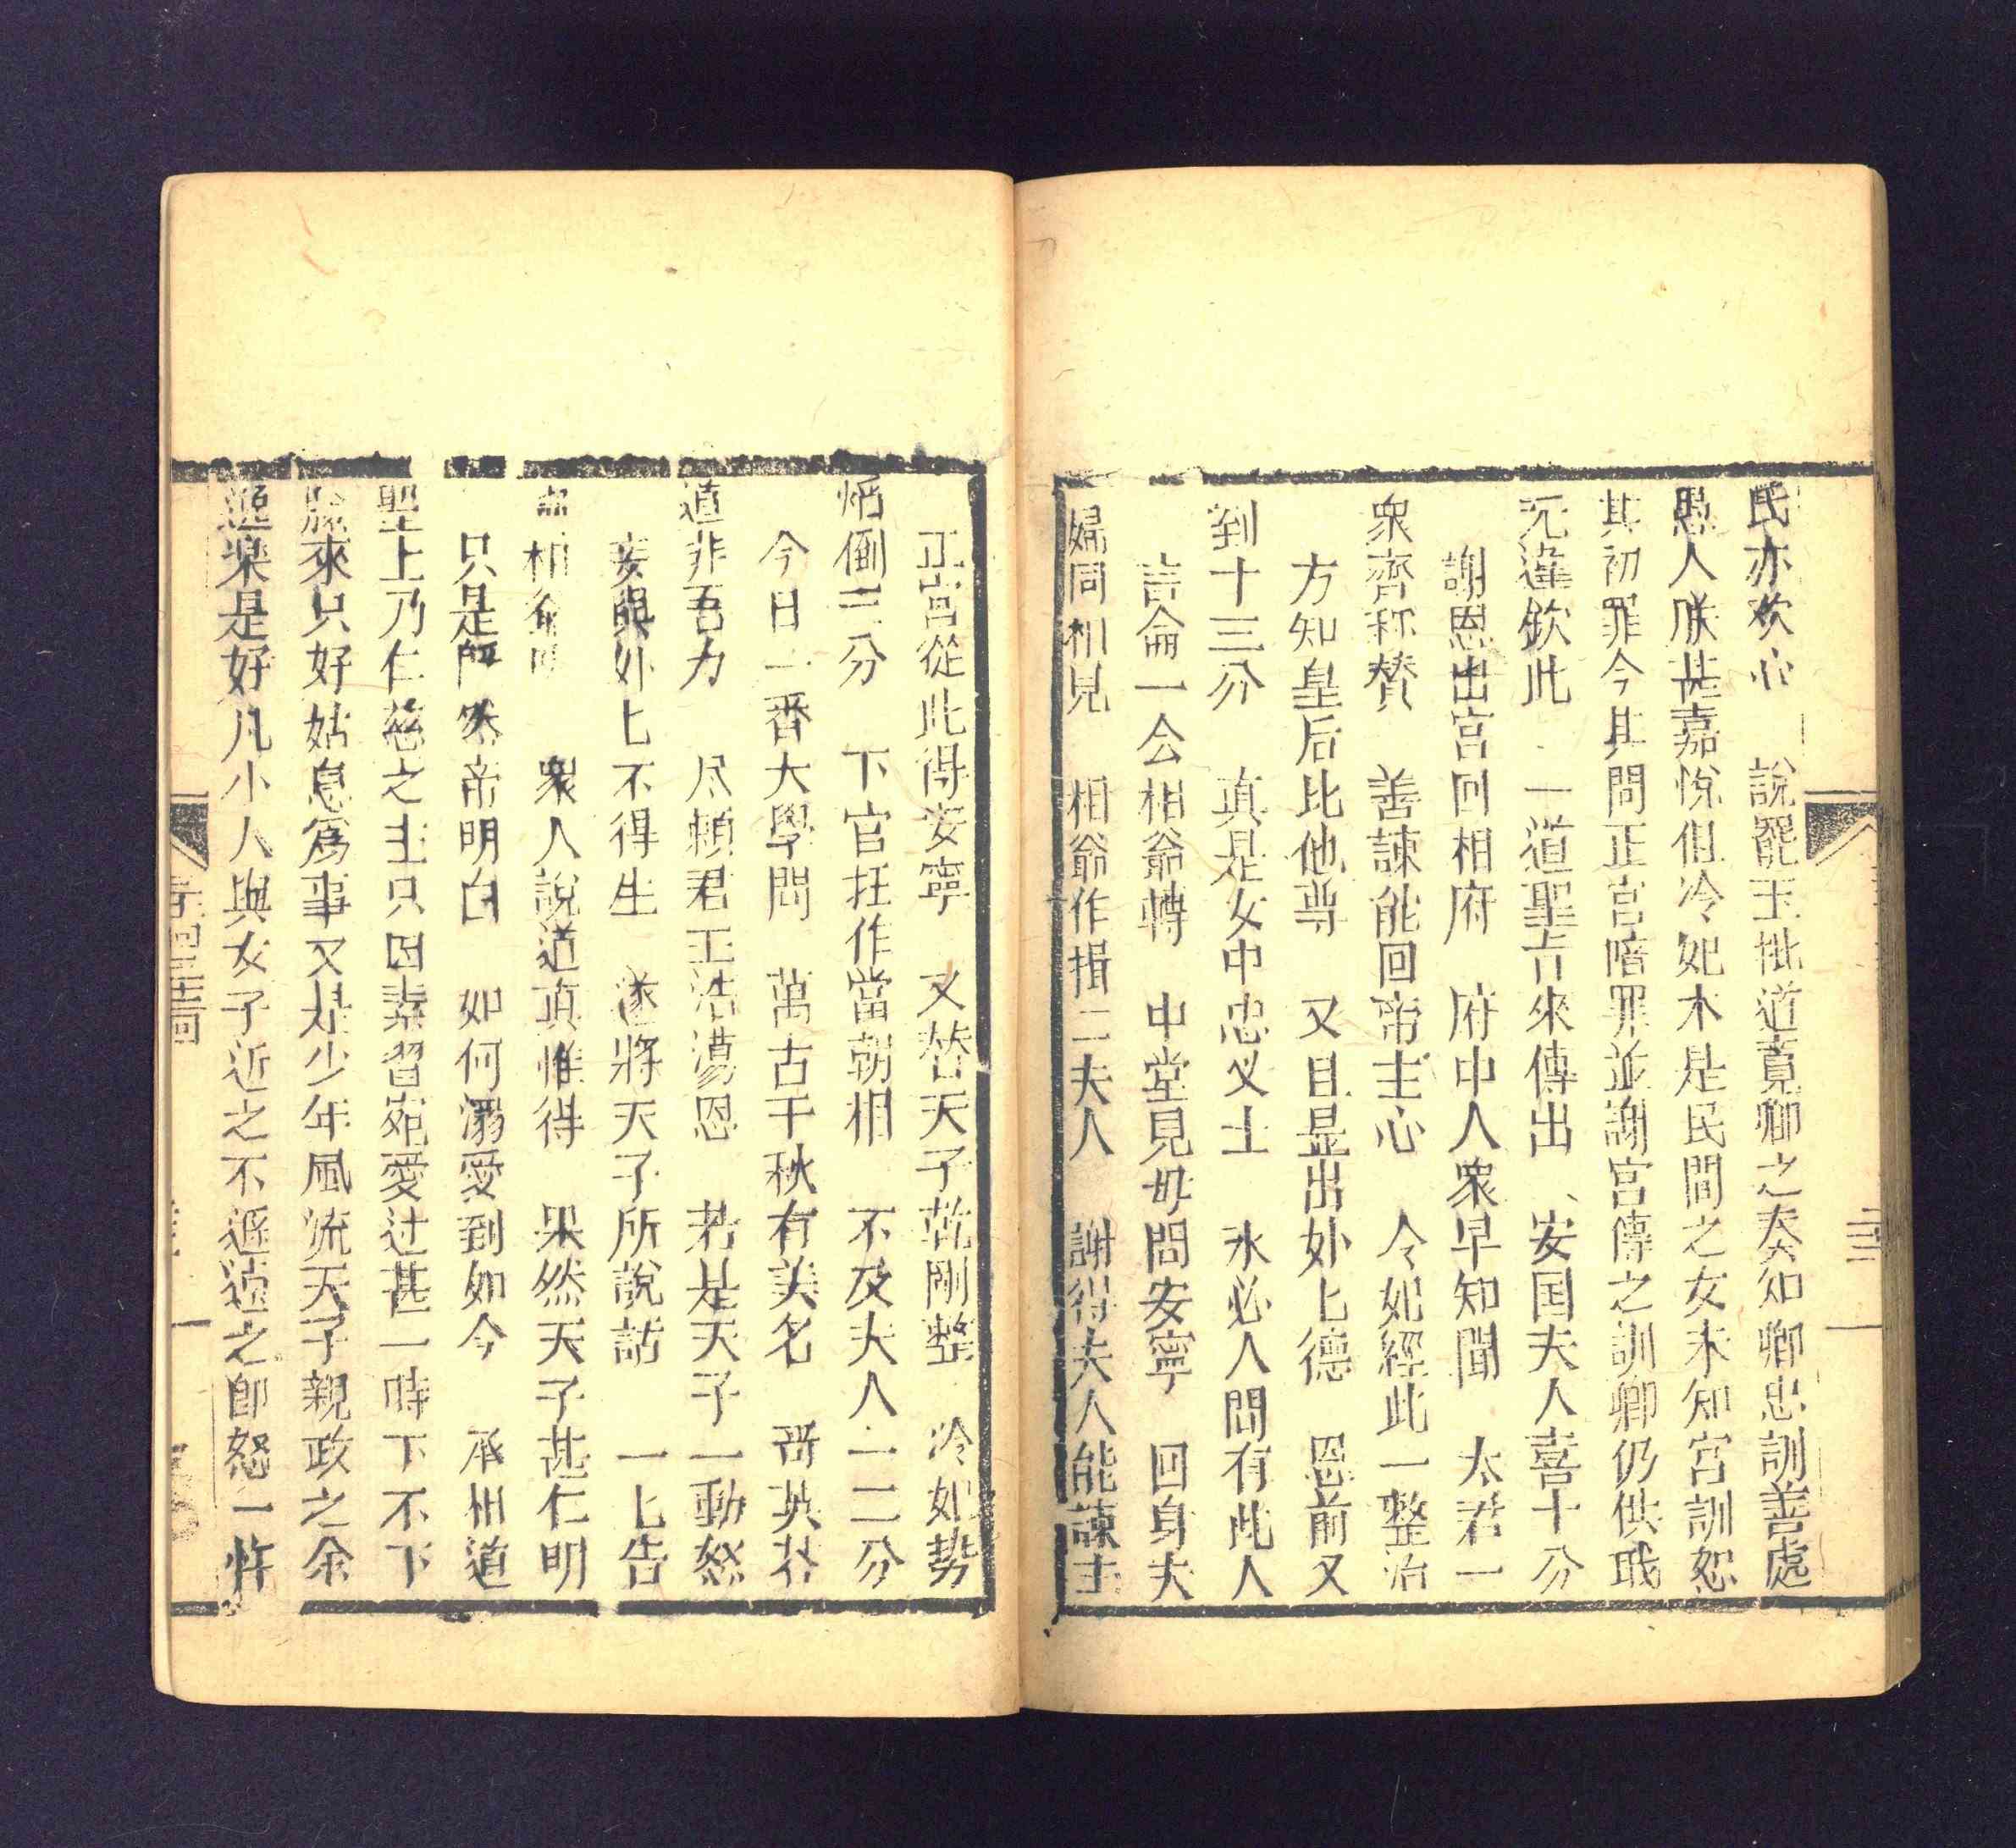 民亦欢心 說罷玉批道竟卿之奏知卿忠訓善處
愚人朕甚嘉悅但冷妃木是民間之女未知宮訓恕
其初罪今其問正宮陪罪並謝宮傳之訓卿仍供耺
无違欽此 一道聖旨來傳出 安国夫人喜十分
謝恩出宮回相府 府中人衆早知聞 太君一
衆齊称賛 善諫能回帝主心 令妃經此一整治
方知皇后比他尊 又且显出外上德 恩前又
到十三分 真是女中忠义士 永必人間有此人
言侖一会相爺轉 中堂見毋問安寧 回身夫
婦同相見 相爺作揖二夫人 謝得夫人能諫主
正宮從此得安寧 又替天子乾剛整 冷妃势
焰倒三分 下官抂作當朝相 不及夫人一二分
今日一番大學問 萬古千秋有美名 晋英荅
道非吾力 尽頼君王浩瀁恩 若是天子一動怒
妾與外上不得生 遂將天子所說話 一七告
相爺 衆人說道真惟得 果然天子甚仁明
只是 帝明白 如何溺愛到如今 承相道
聖上乃仁慈之主只因素習宛愛过甚一時下不下
臉來只好姑息爲事又是少年風流天子親政之余
遊楽是好凡小人與女子近之不遜遠之即怒一件